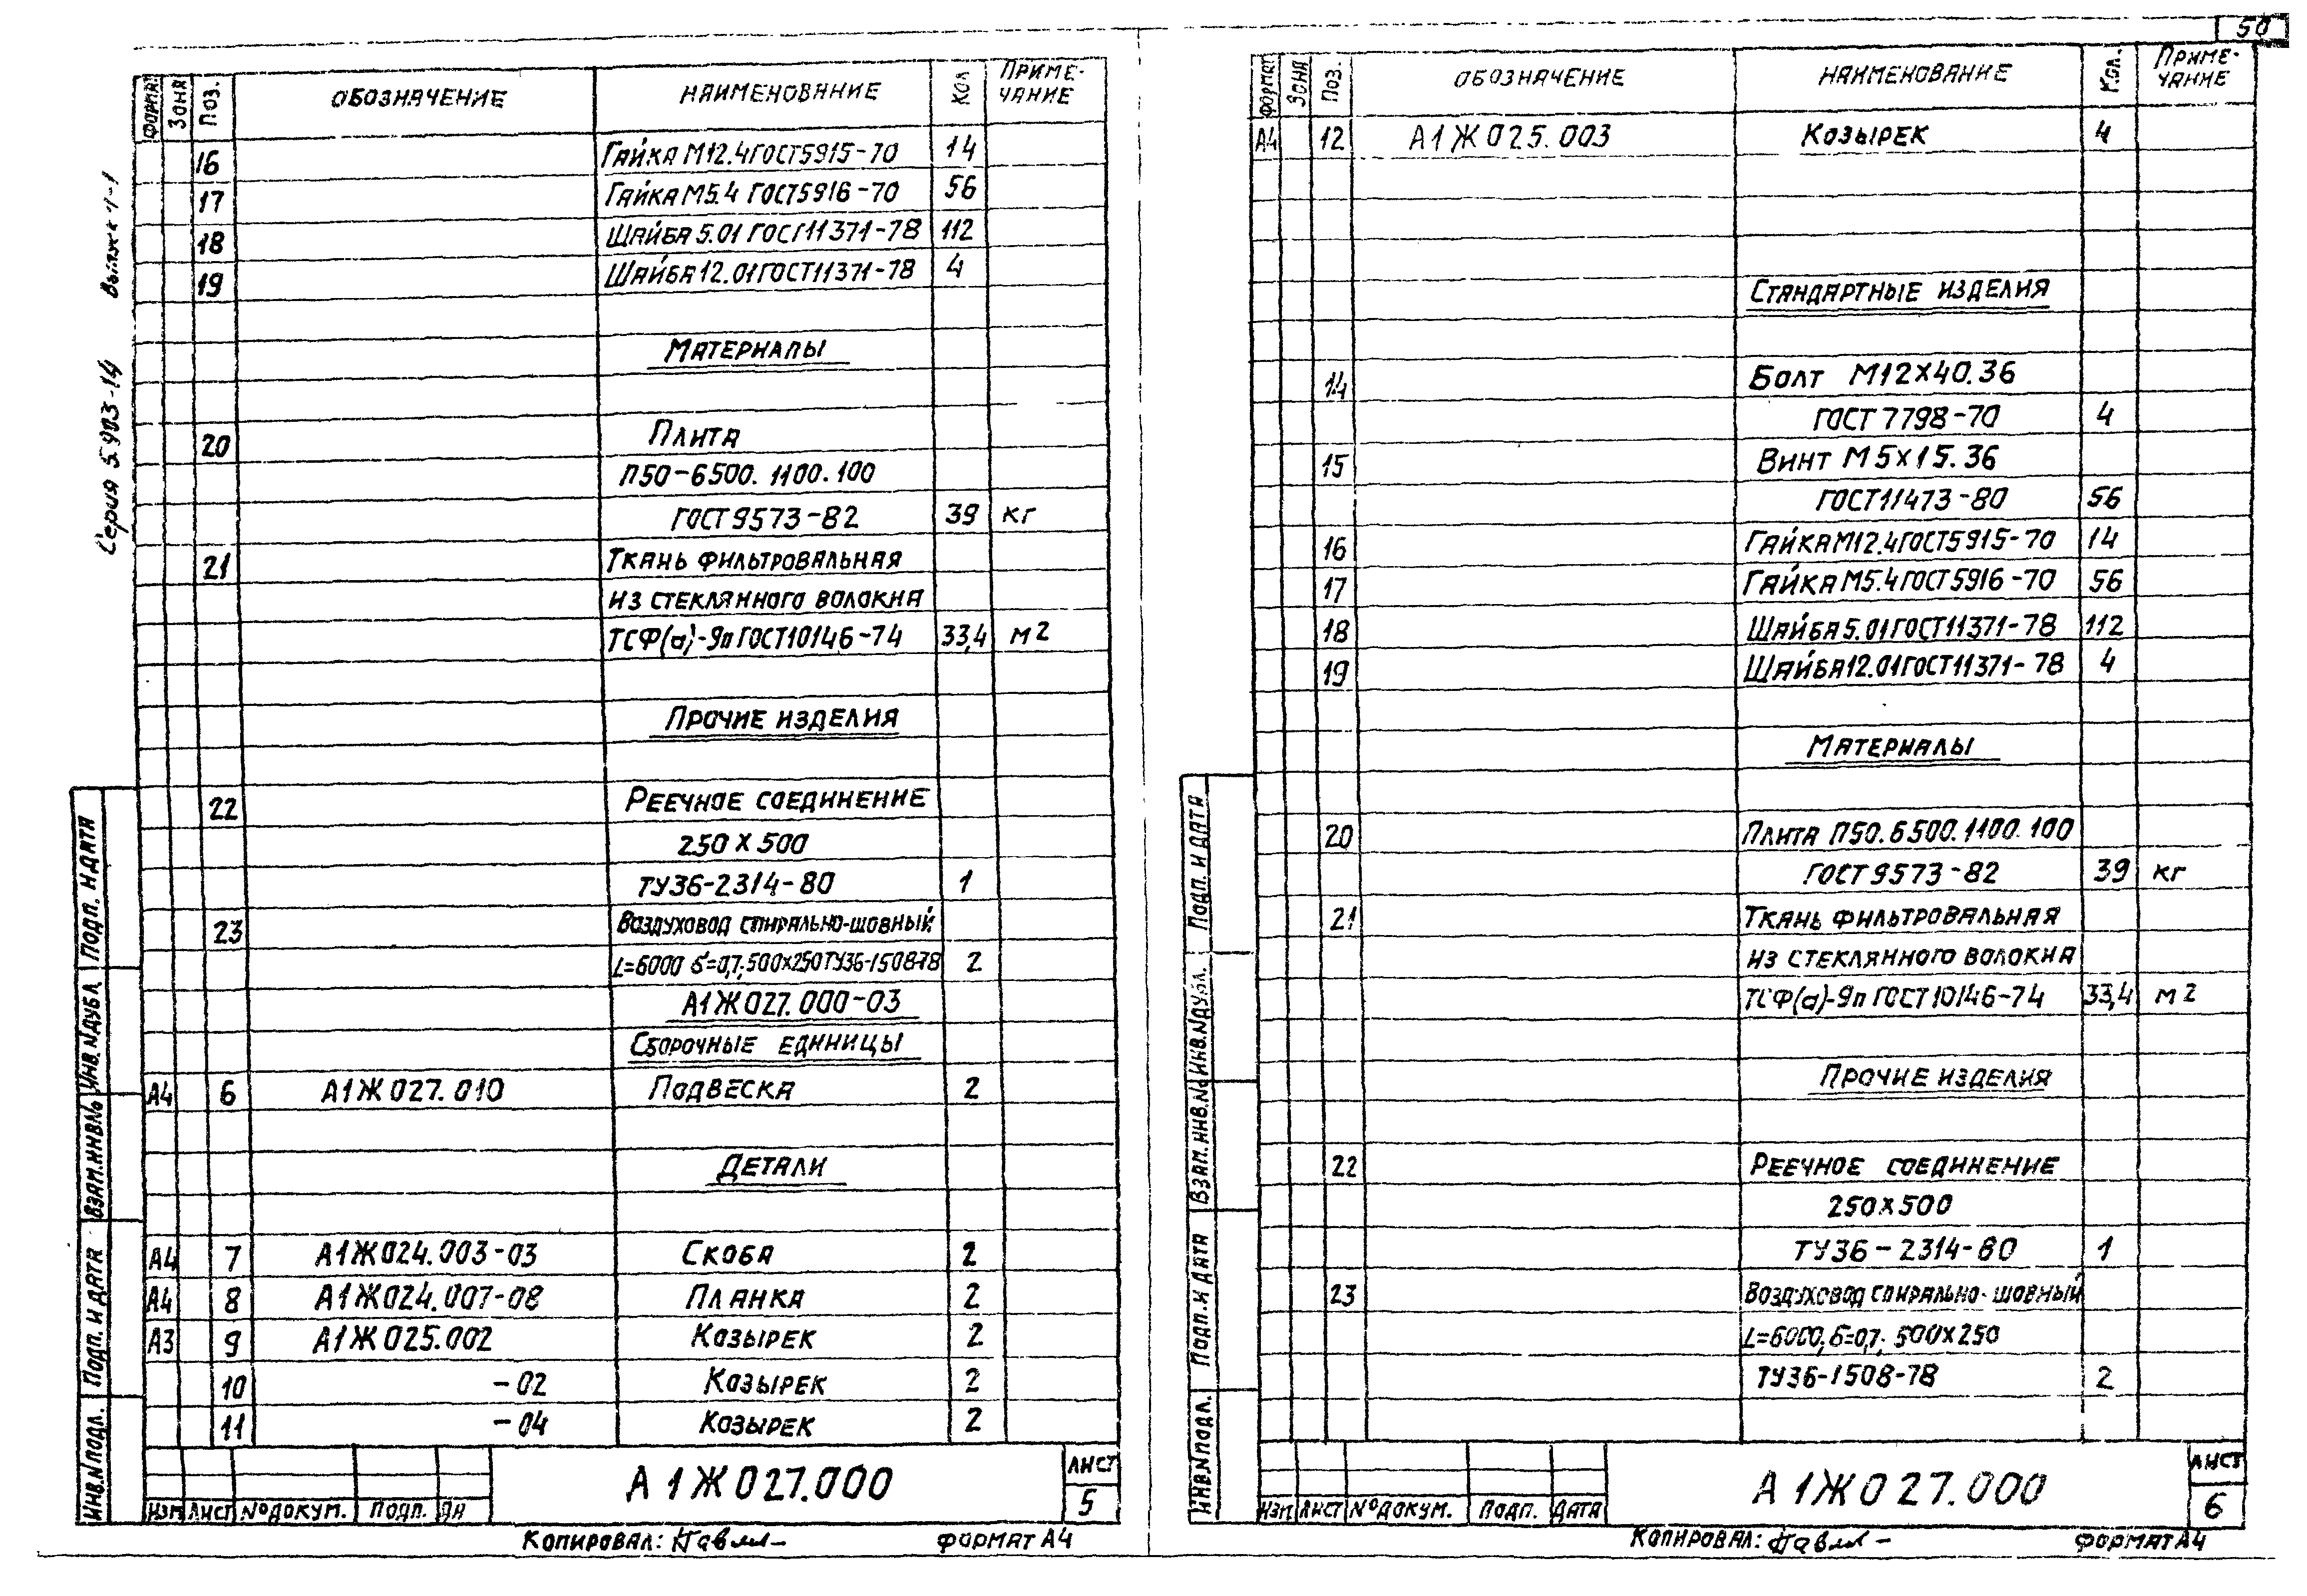 50
Серия 5.903-14 Выпуск 4-1
Формат Зона Поз. Обозначение Наименование Кол Примечание
16 Гайка М12.4 ГОСТ5915-70 14
17 Гайка М5.4 ГОСТ5916-70 56
18 Шайба 5.01 ГОСТ11371-78 112
19 Шайба 12.01 ГОСТ11371-78 4
Материалы
20 Плита
П50-6500.1100.100
ГОСТ 9573-82 39 кг
21 Ткань фильтровальная
из стеклянного волокна
ТСФ(а)-9п ГОСТ10146-74 33,4 м2
Прочие изделия
22 Реечное соединение
250х500
ТУ36-2314-80 1
23 Воздуховод спирально-шовный
L=6000 б=0,7; 500х250 ТУ36-1508-78 2
А1Ж027.000-03
Сборочные единицы
А4 6 А1Ж027.010 Подвеска 2
Детали
А4 7 А1Ж024.003-03 Скоба 2
А4 8 А1Ж024.007-08 Планка 2
А3 9 А1Ж025.002 Козырек 2
10 -02 Козырек 2
11 -04 Козырек 2
Инв.N подл. Подп. и дата Взам.инв.N Инв.N дубл. Подп. и дата
Изм Лист N° докум. Подп. Да
А1Ж027.000
Лист
5
Копировал: Формат А4
Формат Зона Поз. Обозначение Наименование Кол. Примечание
А4 12 А1Ж025.003 Козырек 4
Стандартные изделия
14 Болт М12х40.36
ГОСТ 7798-70 4
15 Винт М5х15.36
ГОСТ11473-80 56
16 Гайка М12.4 ГОСТ5915-70 14
17 Гайка М5.4 ГОСТ5916-70 56
18 Шайба 5.01 ГОСТ11371-78 112
19 Шайба 12.01 ГОСТ11371-78 4
Материалы
20 Плита П50.6500.1100.100
ГОСТ 9573-82 39 кг
21 Ткань фильтровальная
из стеклянного волокна
ТСФ(а)-9п ГОСТ10146-74 33,4 м2
Прочие изделия
22 Реечное соединение
250х500
ТУ36-2314-80 1
23 Воздуховод спирально-шовный
L=6000; б=0,7; 500х250
ТУ36-1508-78 2
Инв.N подл. Подп. и дата Взам.инв.N Инв.N дубл. Подп. и дата
Изм Лист N° докум. Подп. Дата
А1Ж027.000
Лист
6
Копировал: Формат А4